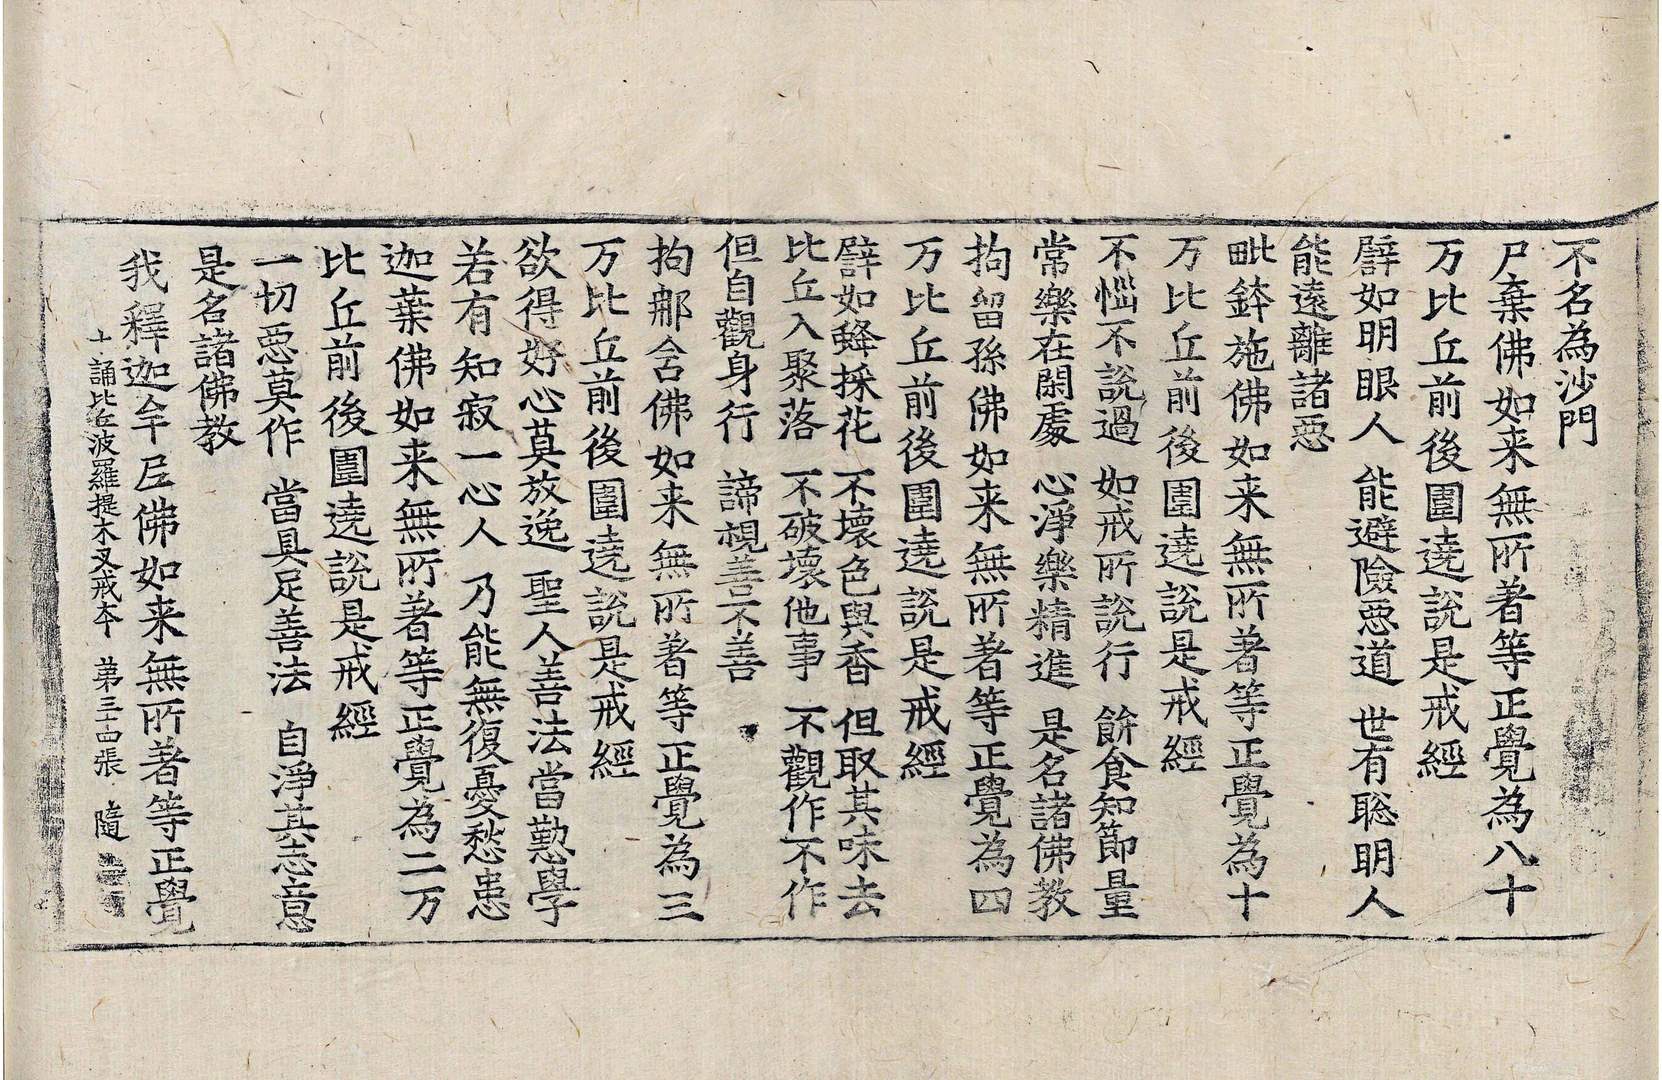 不名為沙門
尸棄佛如来無所著等正覺為八十
万比丘前後圍遶說是戒經
譬如明眼人 能避險惡道 世有聡明人
能遠離諸惡
毗鉢施佛如来無所著等正覺為十
万比丘前後圍遶說是戒經
不惱不說過 如戒所說行 飯食知節量
常樂在閑處 心淨樂精進 是名諸佛教
拘留孫佛如来無所著等正覺為四
万比丘前後圍遶說是戒經
譬如蜂採花 不壞色與香 但取其味去
比丘入聚落 不破壞他事 不觀作不作
但自觀身行 諦視善不善
拘那含佛如来無所著等正覺為三
万比丘前後圍遶說是戒經
欲得好心莫放逸 聖人善法當勤學
若有知寂一心人 乃能無復憂愁患
迦葉佛如来無所著等正覺為二万
比丘前後圍遶說是戒經
一切惡莫作 當具足善法 自淨其志意
是名諸佛教
我釋迦牟尼佛如来無所著等正覺
十誦比丘波羅提木叉戒本 第三十四張 隨